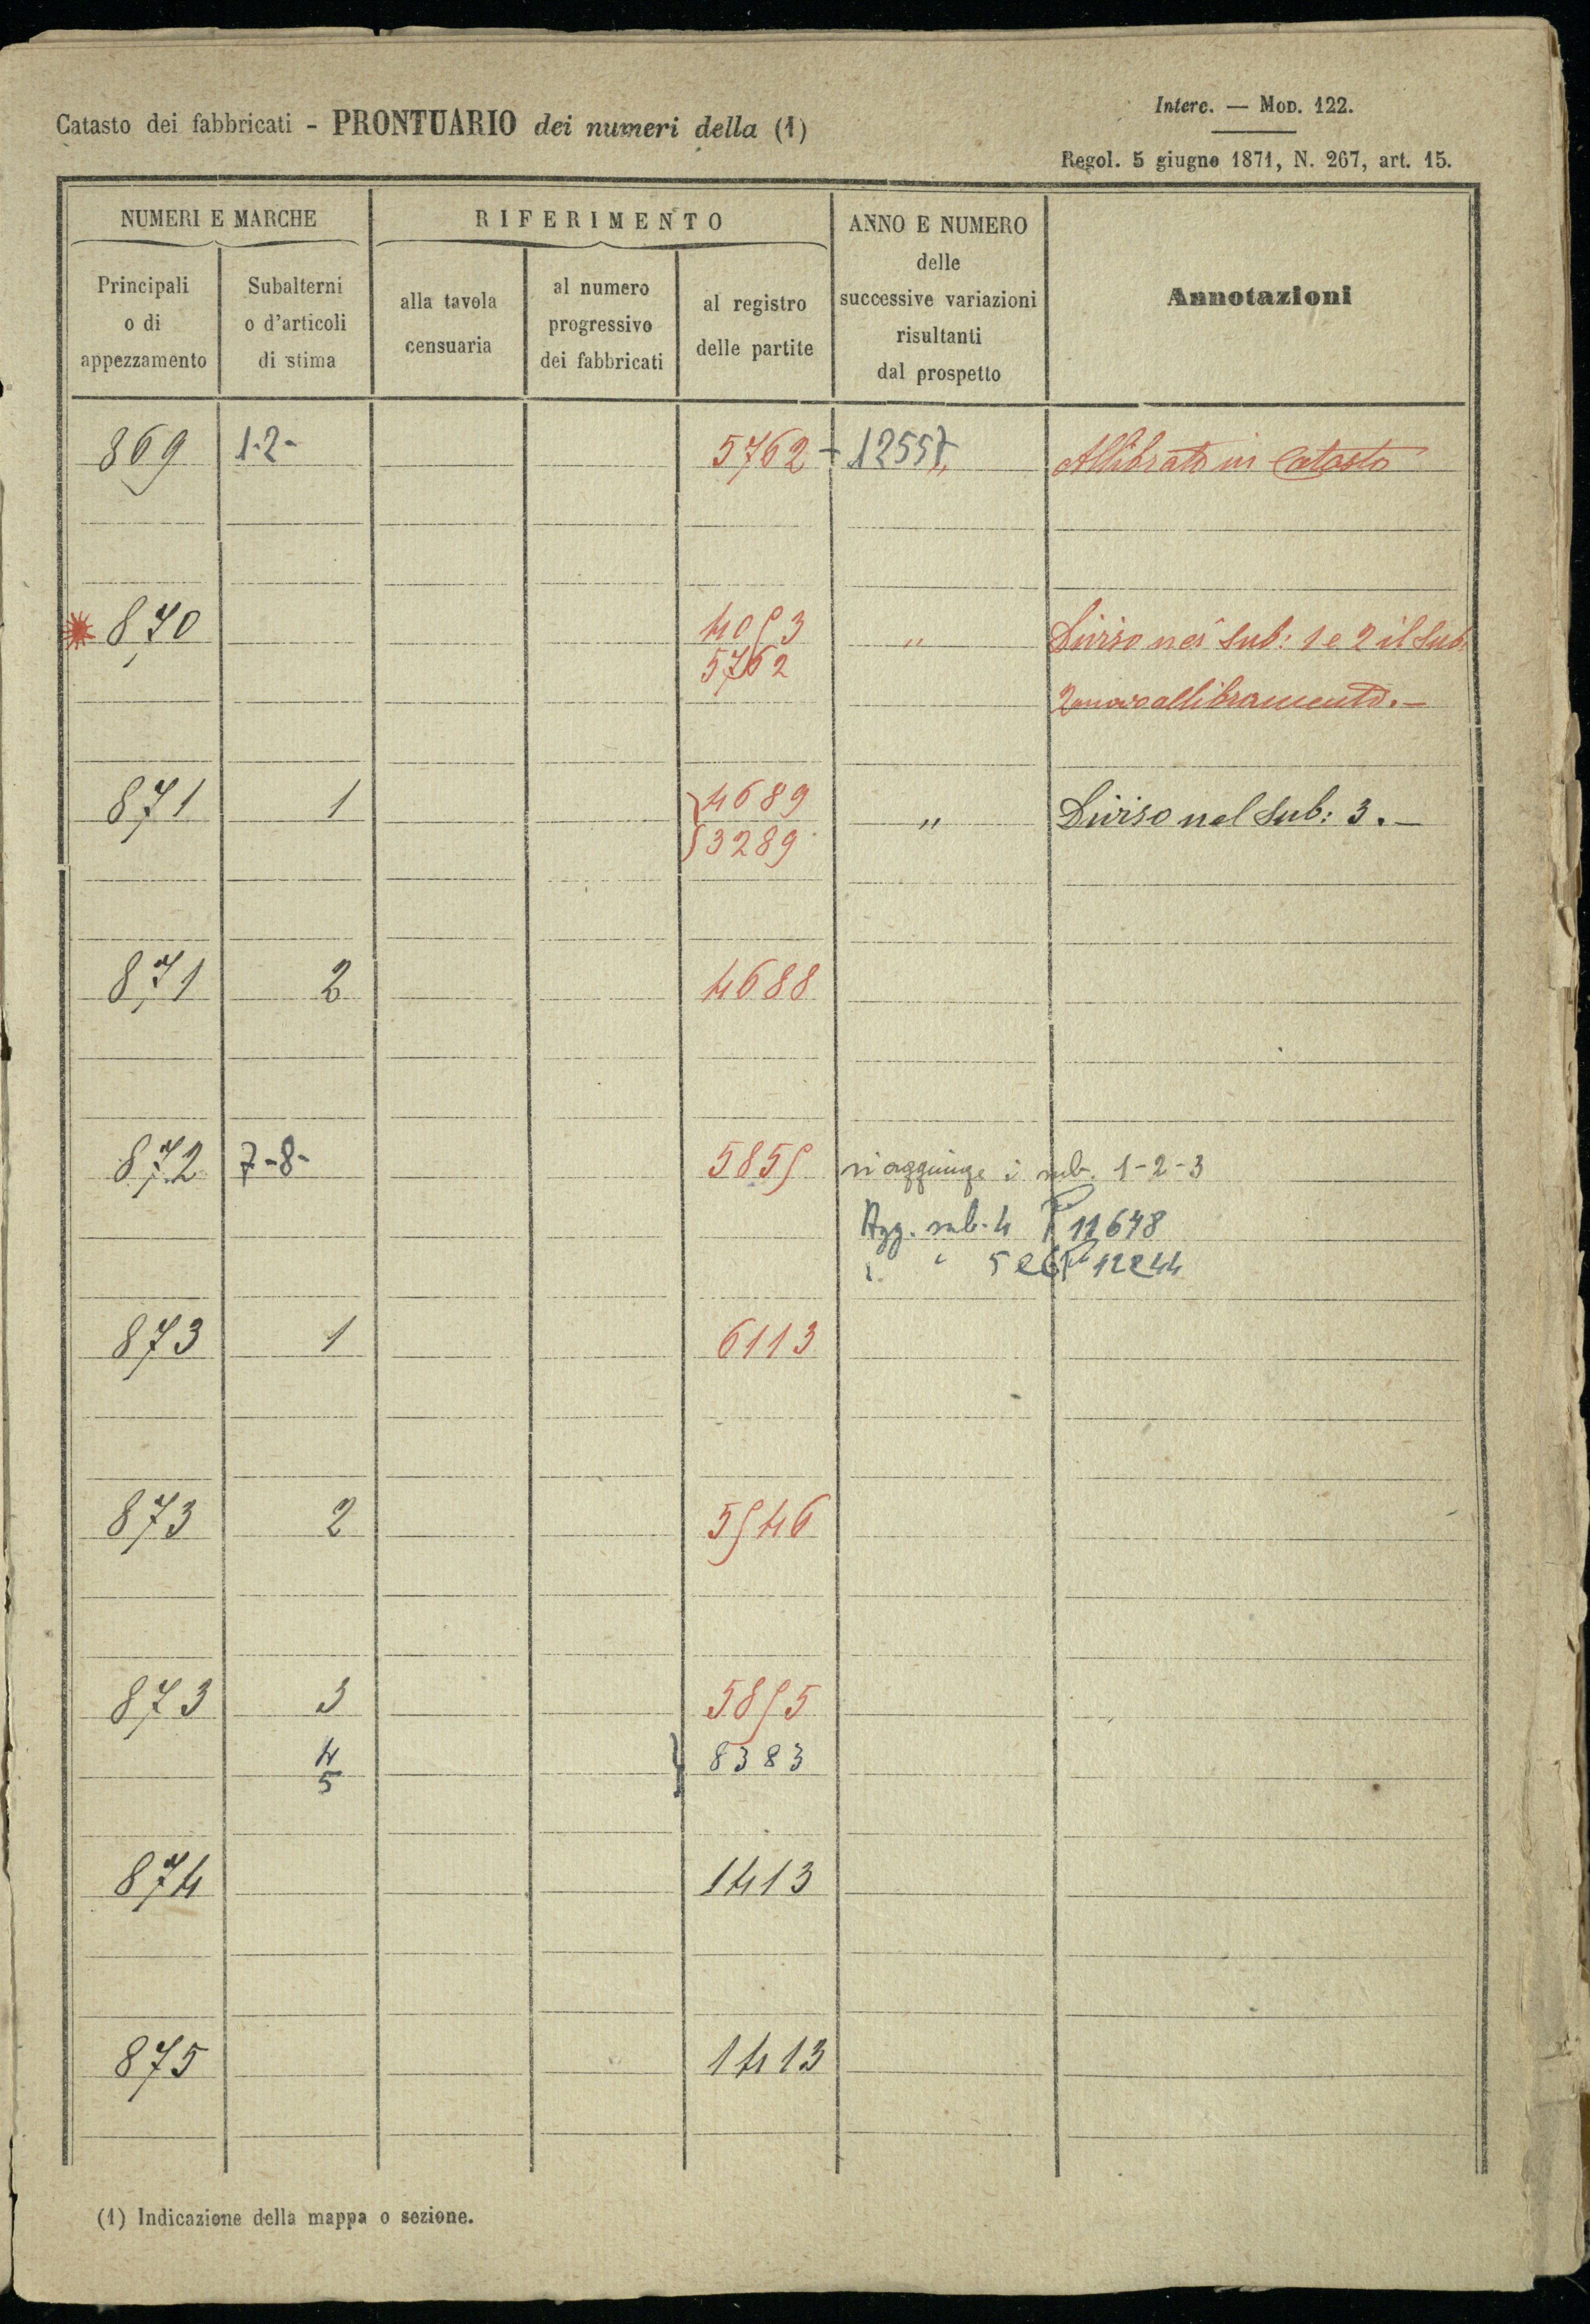 Catasto dei fabbricati - PRONTUARIO dei numeri della (1)
Interc. — Mod. 122.
Regol. 5 giugno 1871, N. 267, art. 15.
NUMERI E MARCHE
RIFERIMENTO
ANNO E NUMERO
delle
successive variazioni
risultanti
dal prospetto
Annotazioni
Principali
o di
appezzamento
Subalterni
o d'articoli
di stima
alla tavola
censuaria
al numero
progressivo
dei fabbricati
al registro
delle partite
869 1-2- 5762 + 12557 Allibrato in Catasto
870 4093 " Diviso nei sub: 1 e 2 il sub.
5762
2 nuovo allibramento. —
871 1 4689 " Diviso nel sub: 3. —
3289
871 2 4688
872 7-8- 5859 si aggiunge i sub. 1-2-3
Agg. sub. 4 11678
" 5 e 6 12244
873 1 6113
873 2 5946
873 3 5895
4 8383
5
874 1413
875 1413
(1) Indicazione della mappa o sezione.